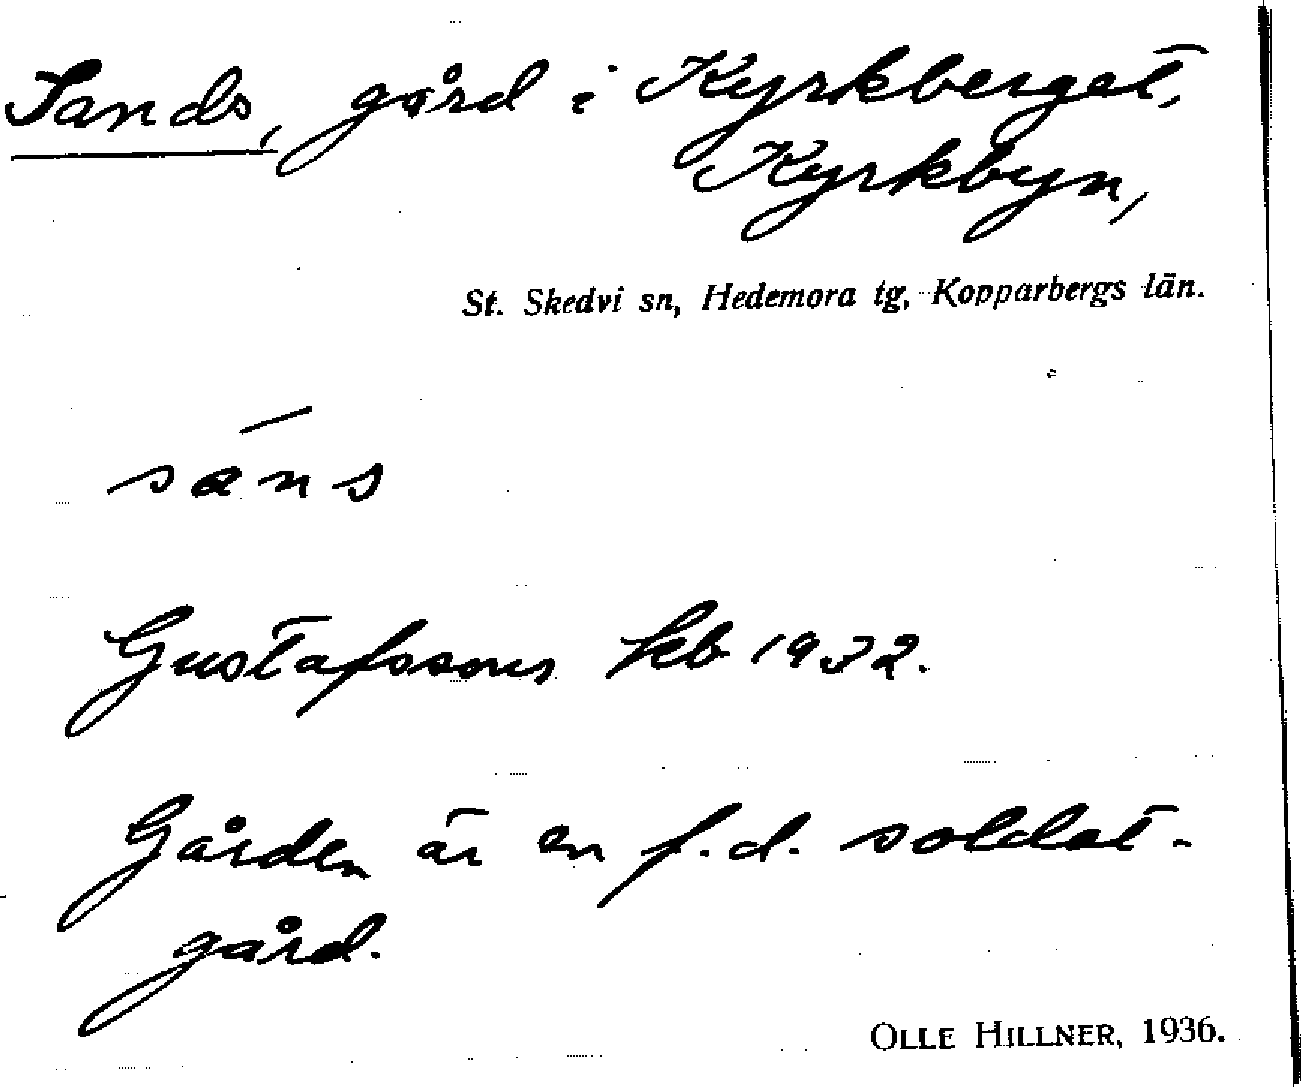 Sands, gård i Kyrkberget,
Kyrkbyn,
St. Skedvi sn, Hedemora tg, Kopparbergs län.
sans
Gustafssons kb 1932.
Gården är en f.d. soldat-
gård.
OLLE HILLNER, 1936.